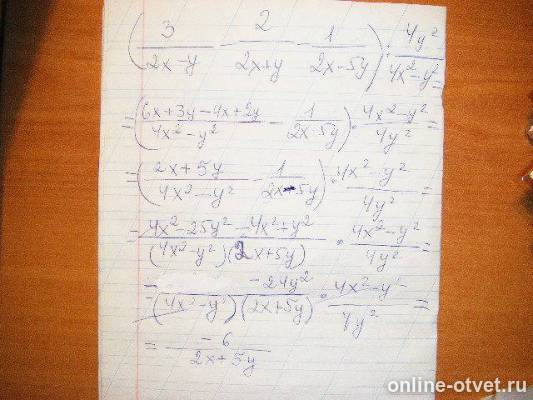 (3/(2x-y) - 2/(2x+y) - 1/(2x-5y)) : 4y²/(4x²-y²) =
= ((6x+3y-4x+2y)/(4x²-y²) - 1/(2x-5y)) · (4x²-y²)/4y² =
= ((2x+5y)/(4x²-y²) - 1/(2x-5y)) · (4x² y²)/4y² =
= (4x²-25y²-4x²+y²)/((4x²-y²)(2x+5y)) · (4x²-y²)/4y² =
= -24y²/((4x²-y²)(2x+5y)) · (4x²-y²)/4y² =
= -6/(2x+5y)
online-otvet.ru